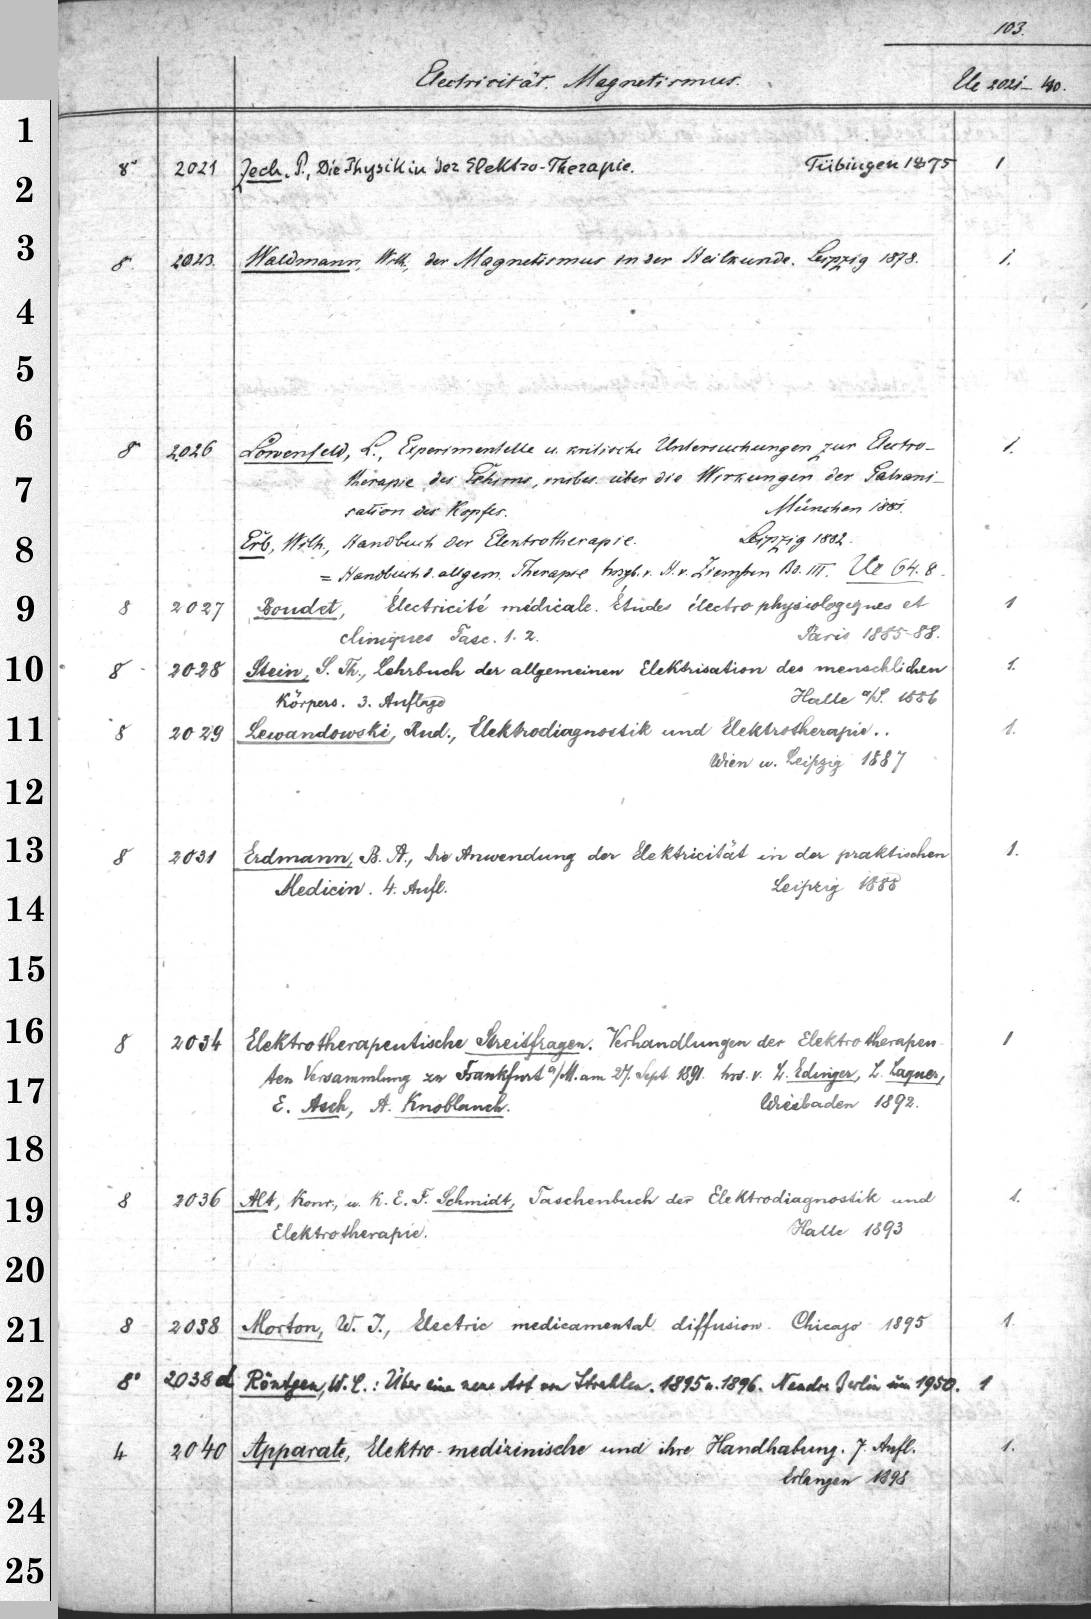 103.
Electricität. Magnetismus. Ue 2021-40.
1
8° 2021 Zech, P., Die Physik in der Elektro-Therapie. Tübingen 1875 1
2
3
8° 2023. Waldmann, Wilh., der Magnetismus in der Heilkunde. Leipzig 1878. 1.
4
5
6
8° 2026 Löwenfeld, L., Experimentelle u. kritische Untersuchungen zur Electro-
therapie des Gehirns, insbes. über die Wirkungen der Galvani-
7
sation des Kopfes. München 1881.
8
Erb, Wilh., Handbuch der Elektrotherapie. Leipzig 1882.
= Handbuch d. allgem. Therapie hrsgb. v. H. v. Ziemssen Bd. III. Ue 64. 8.
9
8 2027 Boudet, Électricité médicale. Études électro physiologiques et 1
cliniques Fasc. 1. 2. Paris 1885-88.
10
8 2028 Stein, S. Th., Lehrbuch der allgemeinen Elektrisation des menschlichen 1.
Körpers. 3. Auflage Halle a/S. 1886
11
8 2029 Lewandowski, Rud., Elektrodiagnostik und Elektrotherapie.. 1.
Wien u. Leipzig 1887
12
13
8 2031 Erdmann, B. A., Die Anwendung der Elektricität in der praktischen 1.
Medicin. 4. Aufl. Leipzig 1888
14
15
16
8 2034 Elektrotherapeutische Streitfragen. Verhandlungen der Elektrotherapeu- 1
ten Versammlung zu Frankfurt a/M. am 27. Sept. 1891. hrs. v. L. Edinger, L. Laquer,
17
E. Asch, A. Knoblauch. Wiesbaden 1892.
18
19
8 2036 Alt, Konr., u. K. E. F. Schmidt, Taschenbuch der Elektrodiagnostik und 1.
Elektrotherapie. Halle 1893
20
21
8 2038 Morton, W. J., Electric medicamental diffusion. Chicago 1895 1.
22
8° 2038 d Röntgen, W. C.: Über eine neue Art von Strahlen. 1895 u. 1896. Neudr. Berlin um 1950. 1
23
4 2040 Apparate, Elektro-medizinische und ihre Handhabung. 7. Aufl. 1.
Erlangen 1898
24
25